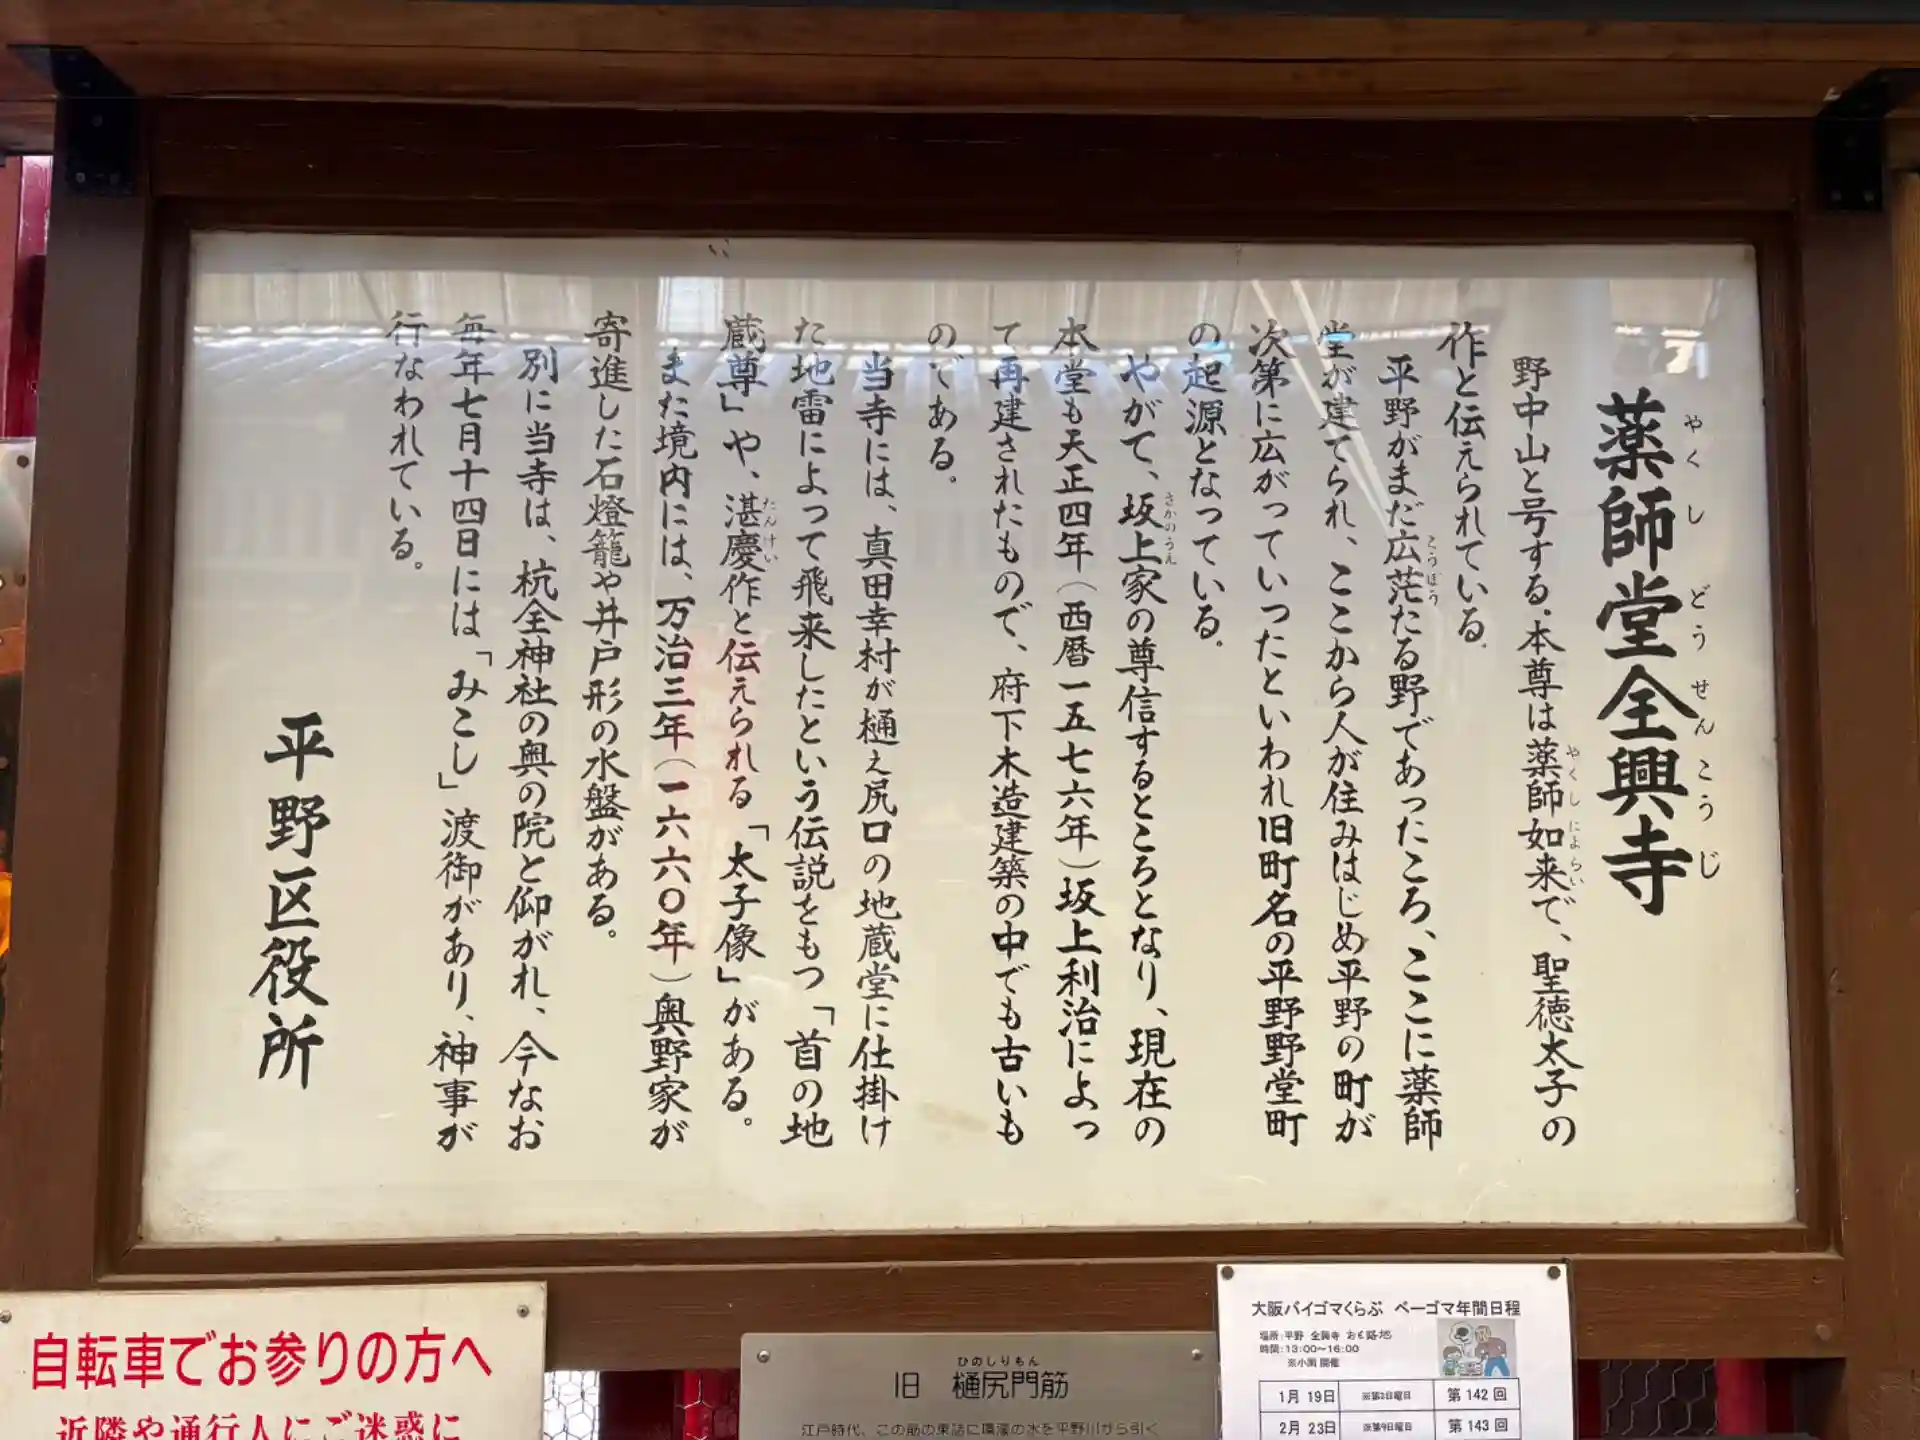 薬師堂全興寺
やくしどうせんこうじ
野中山と号する。本尊は薬師如来で、聖徳太子の
やくしによらい
作と伝えられている。
平野がまだ広茫たる野であったころ、ここに薬師
こうぼう
堂が建てられ、ここから人が住みはじめ平野の町が
次第に広がっていったといわれ旧町名の平野野堂町
の起源となっている。
やがて、坂上家の尊信するところとなり、現在の
さかのうえ
本堂も天正四年（西暦一五七六年）坂上利治によっ
て再建されたもので、府下木造建築の中でも古いも
のである。
当寺には、真田幸村が樋え尻口の地蔵堂に仕掛け
た地雷によって飛来したという伝説をもつ「首の地
蔵尊」や、湛慶作と伝えられる「太子像」がある。
たんけい
また境内には、万治三年（一六六〇年）奥野家が
寄進した石燈籠や井戸形の水盤がある。
別に当寺は、杭全神社の奥の院と仰がれ、今なお
毎年七月十四日には「みこし」渡御があり、神事が
行なわれている。
平野区役所
自転車でお参りの方へ
近隣や通行人にご迷惑に
ひのしりもん
旧 樋尻門筋
江戸時代、この筋の東詰に環濠の水を平野川から引く
大阪バイゴマくらぶ ベーゴマ年間日程
場所:平野 全興寺 おも路地
時間:13:00～16:00
※小雨開催
1月 19日 ※第3日曜日 第 142 回
2月 23日 第 143 回